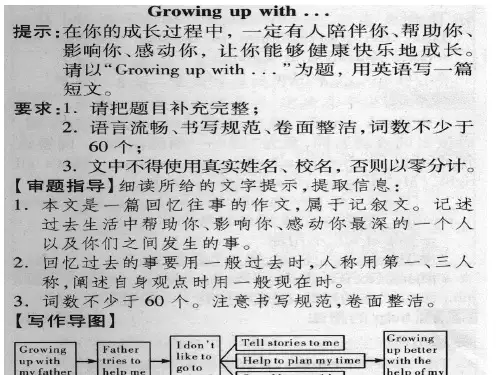 Growing up with ...
提示:在你的成长过程中，一定有人陪伴你、帮助你、
影响你、感动你，让你能够健康快乐地成长。
请以“Growing up with ...”为题，用英语写一篇
短文。
要求:1. 请把题目补充完整；
2. 语言流畅、书写规范、卷面整洁，词数不少于
60 个；
3. 文中不得使用真实姓名、校名，否则以零分计。
【审题指导】细读所给的文字提示，提取信息：
1. 本文是一篇回忆往事的作文，属于记叙文。记述
过去生活中帮助你、影响你、感动你最深的一个人
以及你们之间发生的事。
2. 回忆过去的事要用一般过去时，人称用第一、三人
称，阐述自身观点时用一般现在时。
3. 词数不少于 60 个。注意书写规范，卷面整洁。
【写作导图】
Growing
up with
my father
Father
tries to
help me
I don't
like to
go to
Tell stories to me
Help to plan my time
Growing
up better
with the
help of my